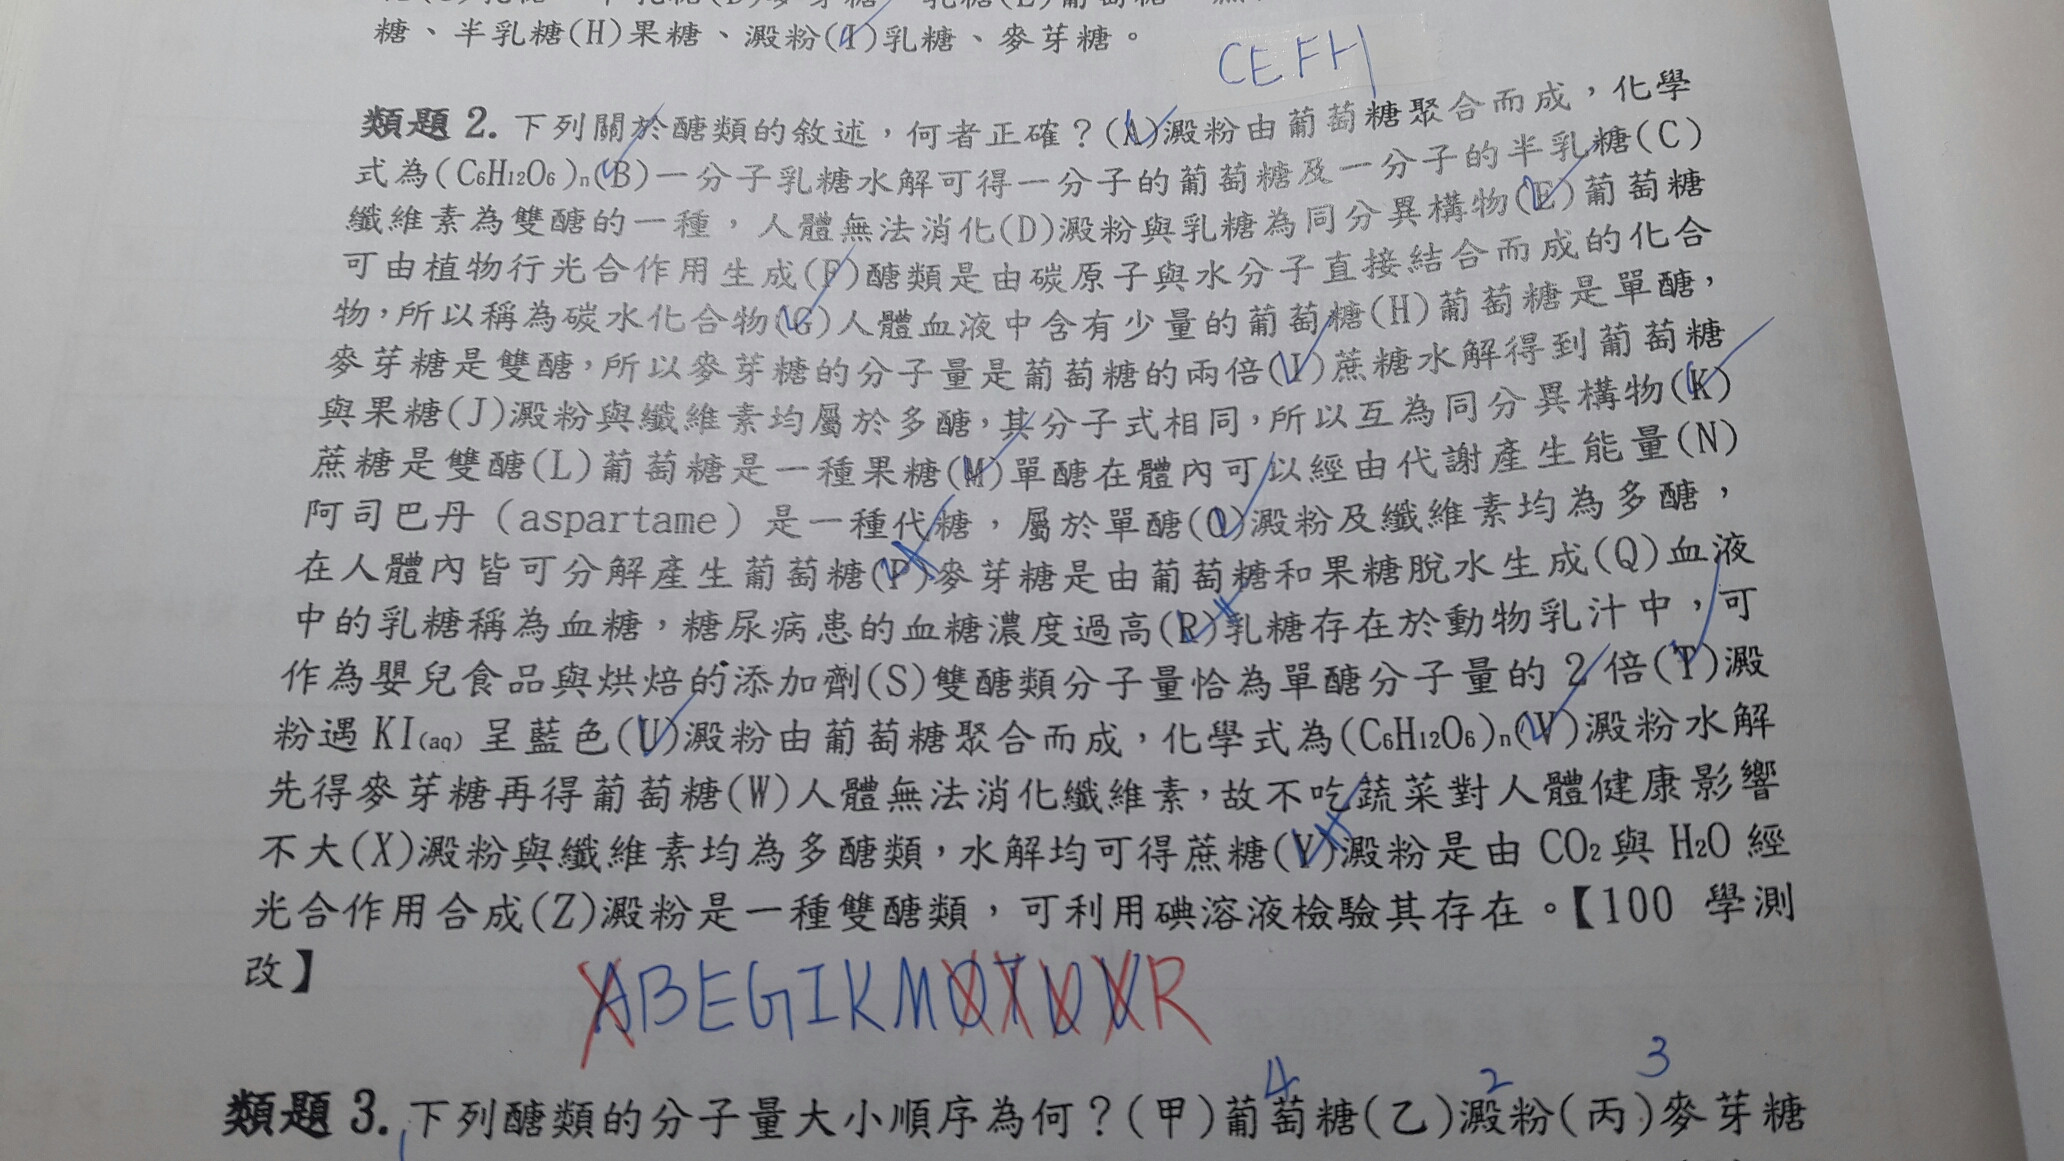 糖、半乳糖(H)果糖、澱粉(I)乳糖、麥芽糖。
CEFH
類題 2. 下列關於醣類的敘述，何者正確？(A)澱粉由葡萄糖聚合而成，化學
式為(C6H12O6)n(B)一分子乳糖水解可得一分子的葡萄糖及一分子的半乳糖(C)
纖維素為雙醣的一種，人體無法消化(D)澱粉與乳糖為同分異構物(E)葡萄糖
可由植物行光合作用生成(F)醣類是由碳原子與水分子直接結合而成的化合
物，所以稱為碳水化合物(G)人體血液中含有少量的葡萄糖(H)葡萄糖是單醣，
麥芽糖是雙醣，所以麥芽糖的分子量是葡萄糖的兩倍(I)蔗糖水解得到葡萄糖
與果糖(J)澱粉與纖維素均屬於多醣，其分子式相同，所以互為同分異構物(K)
蔗糖是雙醣(L)葡萄糖是一種果糖(M)單醣在體內可以經由代謝產生能量(N)
阿司巴丹（aspartame）是一種代糖，屬於單醣(O)澱粉及纖維素均為多醣，
在人體內皆可分解產生葡萄糖(P)麥芽糖是由葡萄糖和果糖脫水生成(Q)血液
中的乳糖稱為血糖，糖尿病患的血糖濃度過高(R)乳糖存在於動物乳汁中，可
作為嬰兒食品與烘焙的添加劑(S)雙醣類分子量恰為單醣分子量的 2 倍(T)澱
粉遇 KI(aq) 呈藍色(U)澱粉由葡萄糖聚合而成，化學式為(C6H12O6)n(V)澱粉水解
先得麥芽糖再得葡萄糖(W)人體無法消化纖維素，故不吃蔬菜對人體健康影響
不大(X)澱粉與纖維素均為多醣類，水解均可得蔗糖(Y)澱粉是由 CO2 與 H2O 經
光合作用合成(Z)澱粉是一種雙醣類，可利用碘溶液檢驗其存在。【100 學測
改】
ABEGIKMOTUVR
4 2 3
類題 3. 下列醣類的分子量大小順序為何？(甲)葡萄糖(乙)澱粉(丙)麥芽糖